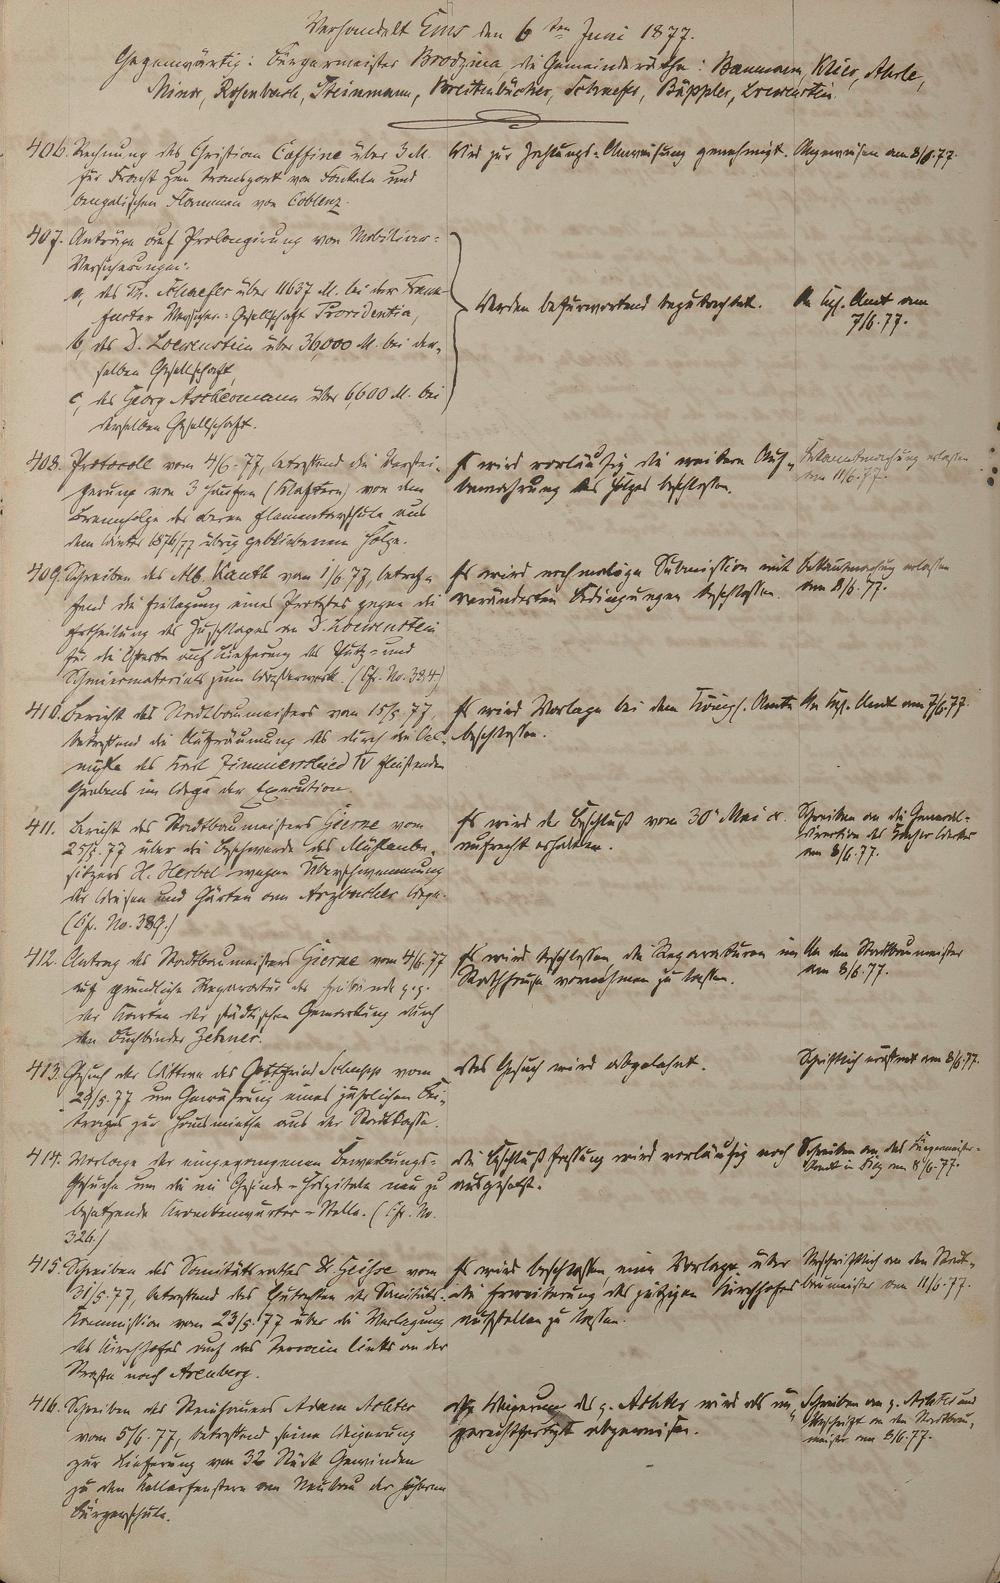 Verhandelt Ems den 6ten Juni 1877.
Gegenwärtig: Bürgermeister Brodzina, die Gemeinderäthe: Baumann, Klier, Ahrle,
Minor, Rosenbach, Steinmann, Breitenbücher, Schaefer, Büppler, Loewenstein.
406. Rechnung des Christian Caffine über 3 M.
für Fracht zum Transport von Fackeln und
bengalischen Flammen von Coblenz.
Wird zur Zahlungs-Anweisung genehmigt.
Angewiesen am 8/6.77.
407. Anträge auf Prolongirung von Mobiliar-
Versicherungen:
a, des Ph. Schaefer über 11637 M. bei der Frank-
furter Versicher.-Gesellschaft Providentia,
b, des D. Loewenstein über 36,000 M. bei der-
selben Gesellschaft,
c, des Georg über 6,600 M. bei
derselben Gesellschaft.
Werden befürwortend begutachtet.
An Kgl. Amt am
7/6.77.
408. Protocoll vom 4/6.77, betreffend die Verstei-
gerung von 3 Haufen (Klaftern) von dem
Brennholze der oberen Elementarschule aus
dem Winter 1876/77 übrig gebliebenen Holze.
Es wird vorläufig die weitere Auf-
bewahrung des Holzes beschlossen.
Bekanntmachung erlassen
am 11/6.77.
409. Schreiben des Alb. Kauth vom 1/6.77, betref-
fend die Einlegung eines Protestes gegen die
Ertheilung des Zuschlages an D. Loewenstein
für die Offerte auf Lieferung des Putz- und
Schmiermaterials zum Wasserwerk. (Cfr. No. 384)
Es wird nochmalige Submission mit
veränderten Bedingungen beschlossen.
Bekanntmachung erlassen
am 8/6.77.
410. Bericht des Stadtbaumeisters vom 15/5.77,
betreffend die Aufräumung des durch die Oel-
mühle des Karl Zimmerschied IV fließenden
Grabens im Wege der Execution.
Es wird Vorlage bei dem Königl. Amte
beschlossen.
An Kgl. Amt am 7/6.77.
411. Bericht des Stadtbaumeisters Gierne vom
25/5.77 über die Beschwerde des Mühlenbe-
sitzers H. Herbel wegen Überschwemmung
der Wiesen und Gärten am Arzbacher Wege.
(Cfr. No. 389.)
Es wird der Beschluß vom 30. Mai cr.
aufrecht erhalten.
Schreiben an die General-
Direction des Emser Werkes
am 8/6.77.
412. Antrag des Stadtbaumeisters Gierne vom 4/6.77
auf gründliche Reparatur der
der Karten der städtischen Gemarkung durch
den Buchbinder Zehner.
Es wird beschlossen die Reparaturen im
Rathhause vornehmen zu lassen.
An den Stadtbaumeister
am 8/6.77.
413. Gesuch der Wittwe des Gottfried Schupp vom
29/5.77 um Gewährung eines jährlichen Bei-
trages zur Hausmiethe aus der Stadtkasse.
Das Gesuch wird abgelehnt.
Schriftlich eröffnet am 8/6.77.
414. Vorlage der eingegangenen Bewerbungs-
Gesuche um die im Gesinde-Hospitale neu zu
besetzende Krankenwärter-Stelle. (Cfr. No.
326.)
Die Beschlußfassung wird vorläufig noch
ausgesetzt.
Schreiben an das Bürgermeister-
Amt in am 8/6.77.
415. Schreiben des Sanitätsrathes Dr. Geisse vom
31/5.77, betreffend das Gutachten der Sanitäts-
Commission vom 23/5.77 über die Verlegung
des Kirchhofes auf das Terrain links an der
Straße nach Arenberg.
Es wird beschlossen, eine Vorlage über
die Erweiterung des jetzigen Kirchhofes
aufstellen zu lassen.
Abschriftlich an den Stadt-
baumeister am 11/6.77.
416. Schreiben des Steinhauers Adam Achter
vom 5/6.77, betreffend seine Weigerung
zur Lieferung von 32 Stück Gewinden
zu den Kellerfenstern am Neubau der höheren
Bürgerschule.
Die Weigerung des p. Achter wird als un-
gerechtfertigt abgewiesen.
Schreiben an p. Achter und
Abschrift an den Stadtbau-
meister am 8/6.77.